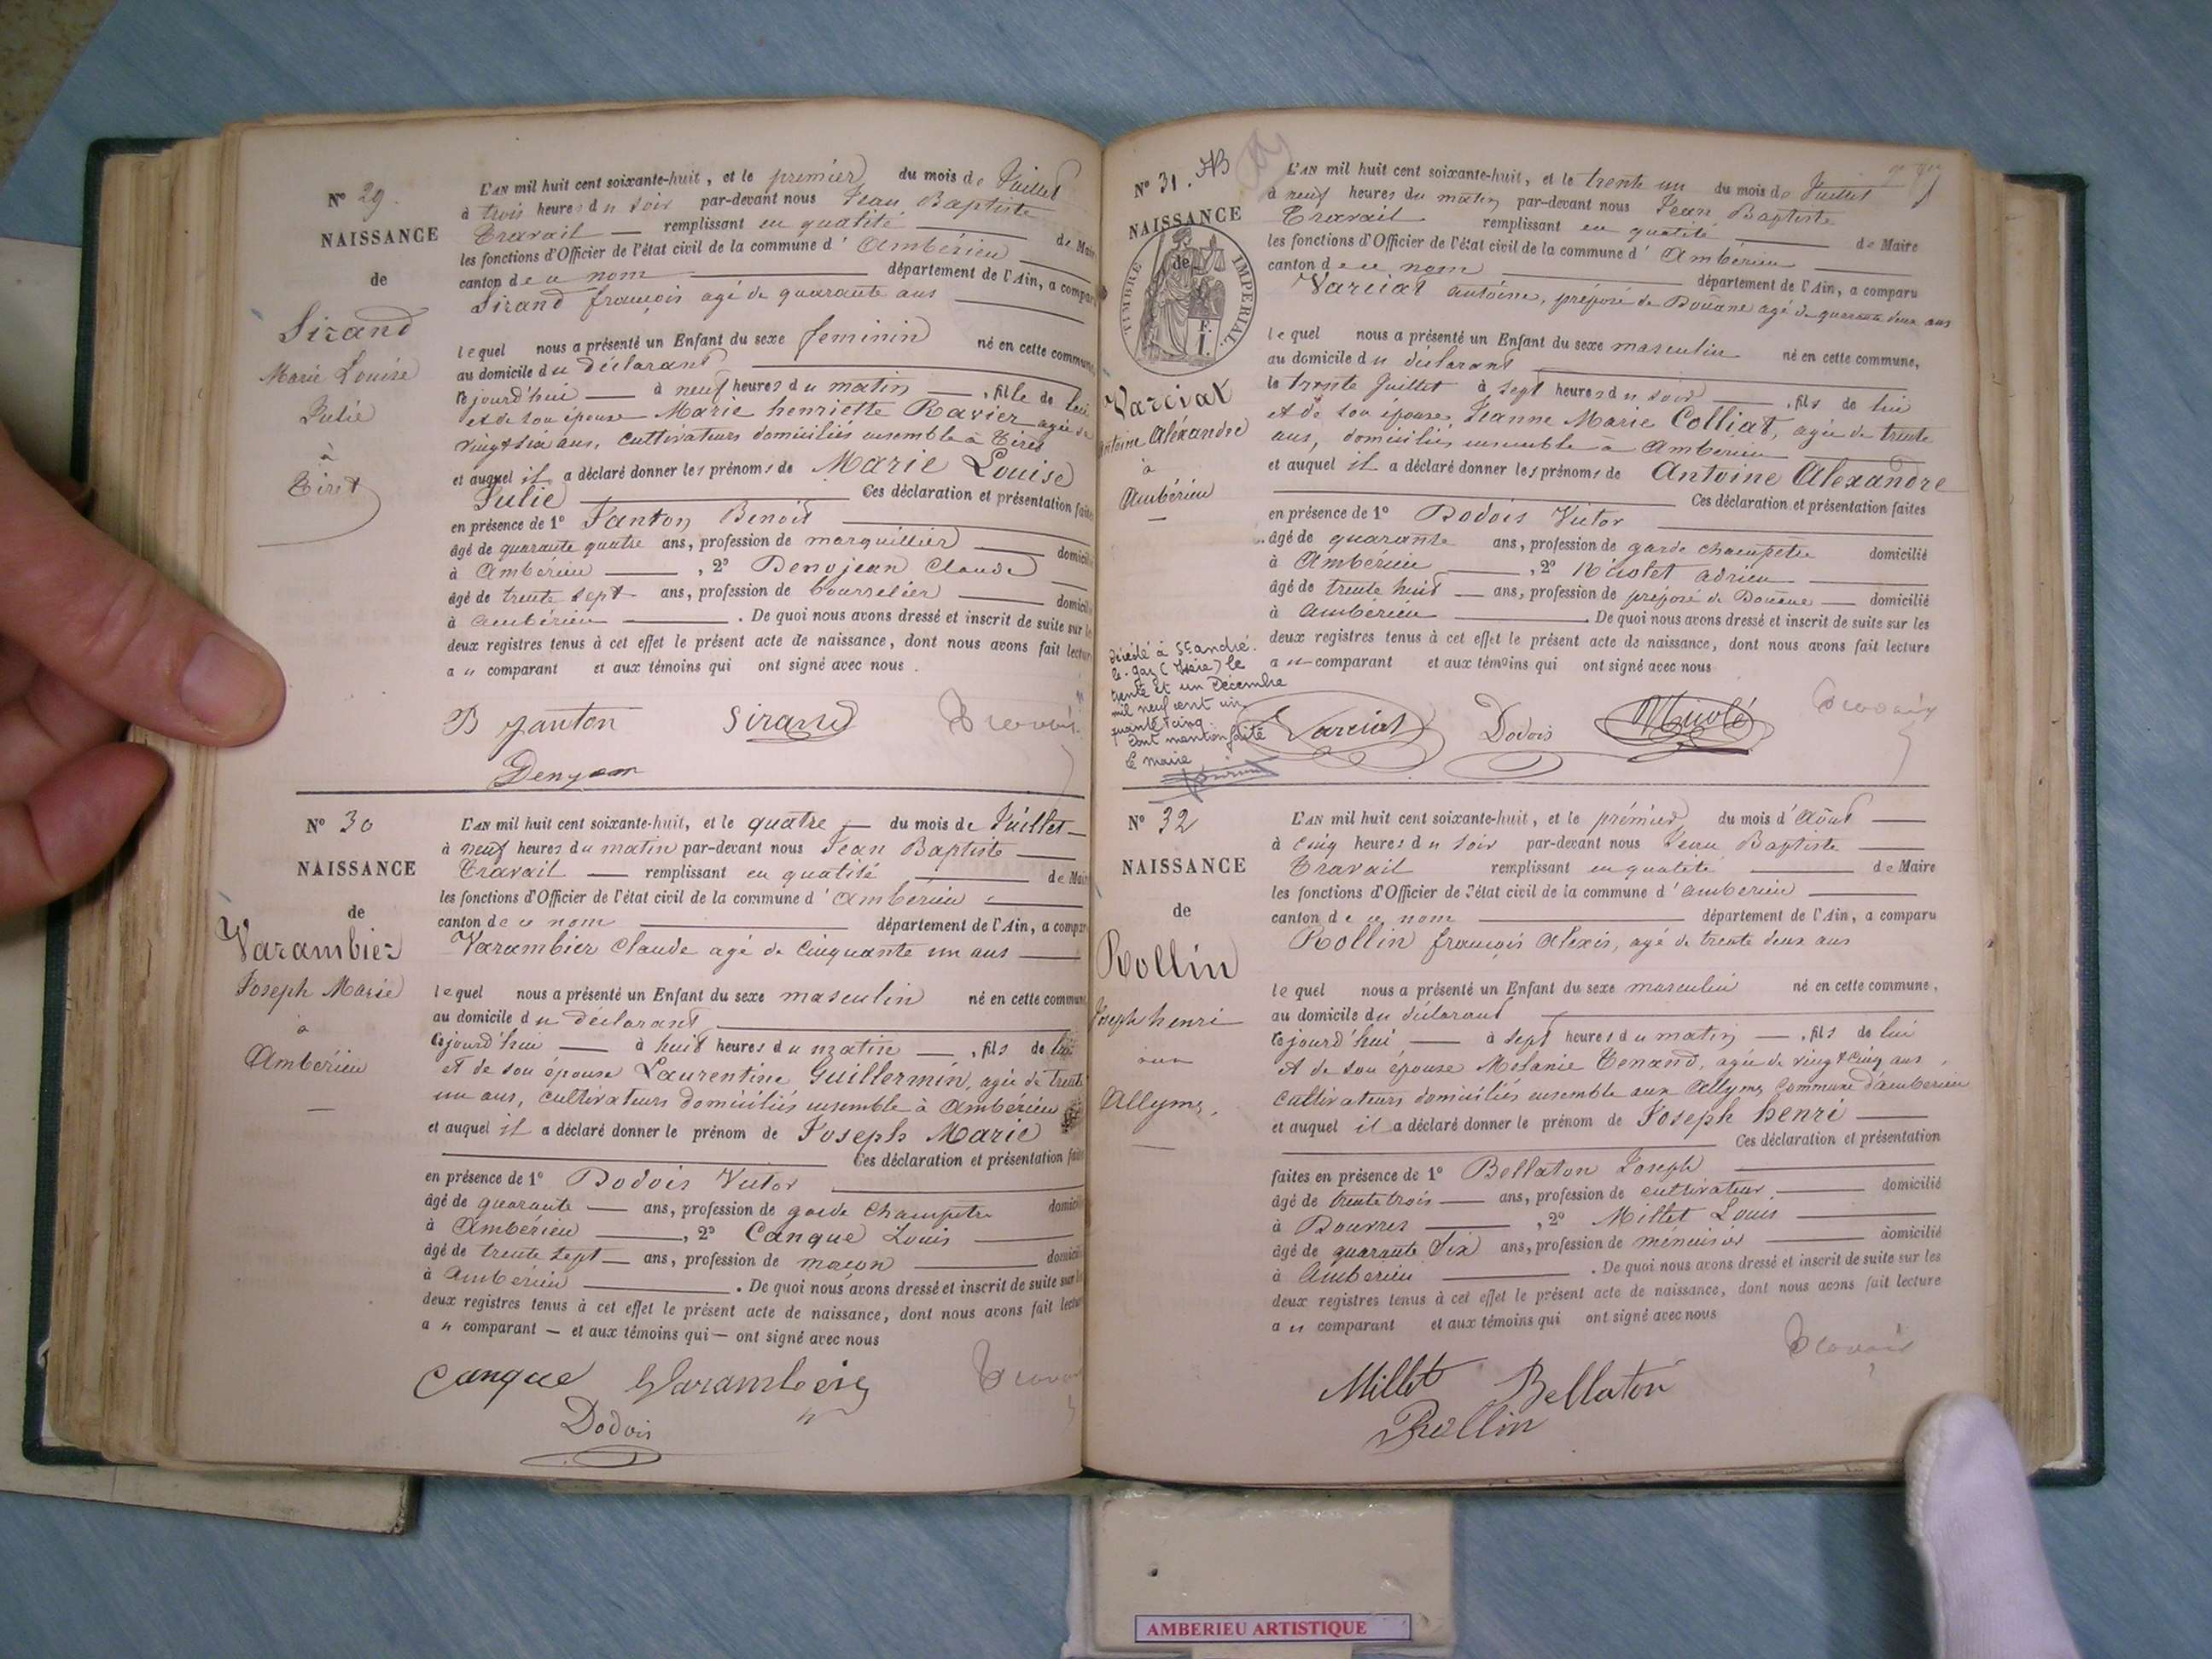 N° 29.
NAISSANCE
de
Sirand
Marie Louise
Julie
à
Tiret
L'AN mil huit cent soixante-huit, et le premier du mois de Juillet
à trois heures du soir par-devant nous Jean Baptiste
Travail — remplissant en qualité de Maire
les fonctions d'Officier de l'état civil de la commune d'Ambérieu
canton de ce nom département de l'Ain, a comparu
Sirand françois agé de quarante ans
lequel nous a présenté un Enfant du sexe feminin né en cette commune
au domicile du déclarant
cejourd'hui — à neuf heures du matin —, fille de lui
et de son épouse Marie henriette Ravier agée de
vingt six ans, cultivateurs domiciliés ensemble à Tiret
et auquel il a déclaré donner les prénoms de Marie Louise
Julie Ces déclaration et présentation faites
en présence de 1° Janton Benoit
âgé de quarante quatre ans, profession de marguillier domicilié
à Ambérieu, 2° Denojean Claude
âgé de trente sept ans, profession de bourrelier domicilié
à Ambérieu. De quoi nous avons dressé et inscrit de suite sur les
deux registres tenus à cet effet le présent acte de naissance, dont nous avons fait lecture
a u comparant et aux témoins qui ont signé avec nous.
B Janton Sirand Travail
N° 30
NAISSANCE
de
Varambier
Joseph Marie
à
Ambérieu
L'AN mil huit cent soixante-huit, et le quatre — du mois de Juillet —
à neuf heures du matin par-devant nous Jean Baptiste —
Travail — remplissant en qualité — de Maire
les fonctions d'Officier de l'état civil de la commune d'Ambérieu
canton de ce nom département de l'Ain, a comparu
Varambier Claude agé de cinquante un ans —
lequel nous a présenté un Enfant du sexe masculin né en cette commune
au domicile du déclarant
cejourd'hui — à huit heures du matin —, fils de lui
et de son épouse Laurentine Guillermin, agée de trente
un ans, cultivateurs domiciliés ensemble à Ambérieu
et auquel il a déclaré donner le prénom de Joseph Marie
Ces déclaration et présentation faites
en présence de 1° Dodois Victor
âgé de quarante — ans, profession de garde champetre domicilié
à Ambérieu —, 2° Canque Louis
âgé de trente sept — ans, profession de maçon domicilié
à Ambérieu. De quoi nous avons dressé et inscrit de suite sur les
deux registres tenus à cet effet le présent acte de naissance, dont nous avons fait lecture
a u comparant — et aux témoins qui — ont signé avec nous
Canque Varambier Travail
Dodois
N° 31.
NAISSANCE
de
TIMBRE IMPERIAL
Varciat
Antoine Aléxandre
à
Ambérieu
Décédé à St andré
le-gaz (Isère) le
trente et un Décembre
mil neuf cent cin
quante cinq.
Dont mention faite
Le maire
L'AN mil huit cent soixante-huit, et le trente un du mois de Juillet
à neuf heures du matin par-devant nous Jean Baptiste
Travail remplissant en qualité de Maire
les fonctions d'Officier de l'état civil de la commune d'Ambérieu
canton de ce nom département de l'Ain, a comparu
Varciat antoine, préposé de Douane agé de quarante deux ans
lequel nous a présenté un Enfant du sexe masculin né en cette commune,
au domicile du déclarant
le trente Juillet à sept heures du soir —, fils de lui
et de son épouse, Jeanne Marie Colliat, agée de trente
ans, domiciliés ensemble à Ambérieu
et auquel il a déclaré donner les prénoms de Antoine Alexandre
Ces déclaration et présentation faites
en présence de 1° Dodois Victor
âgé de quarante ans, profession de garde champetre domicilié
à Ambérieu, 2° Nicolet adrien
âgé de trente huit — ans, profession de preposé de Douane — domicilié
à Ambérieu. De quoi nous avons dressé et inscrit de suite sur les
deux registres tenus à cet effet le présent acte de naissance, dont nous avons fait lecture
a u comparant et aux témoins qui ont signé avec nous
Varciat Dodois Travail
N° 32
NAISSANCE
de
Rollin
Joseph henri
aux
Allyms.
L'AN mil huit cent soixante-huit, et le prémier du mois d'Août —
à cinq heures du soir par-devant nous Jean Baptiste —
Travail remplissant en qualité de Maire
les fonctions d'Officier de l'état civil de la commune d'ambérieu
canton de ce nom département de l'Ain, a comparu
Rollin françois alexis, agé de trente deux ans
lequel nous a présenté un Enfant du sexe masculin né en cette commune,
au domicile du déclarant
cejourd'hui — à sept heures du matin —, fils de lui
et de son épouse Melanie Tenand, agée de vingt cinq ans,
cultivateurs domiciliés ensemble aux allyms commune d'ambérieu
et auquel il a déclaré donner le prénom de Joseph henri —
Ces déclaration et présentation
faites en présence de 1° Bellaton Joseph
âgé de trente trois — ans, profession de cultivateur domicilié
à Douvres —, 2° Millet Louis
âgé de quarante six ans, profession de ménuisier domicilié
à Ambérieu. De quoi nous avons dressé et inscrit de suite sur les
deux registres tenus à cet effet le présent acte de naissance, dont nous avons fait lecture
a u comparant et aux témoins qui ont signé avec nous
Millet Bellaton Travail
Rollin
AMBERIEU ARTISTIQUE